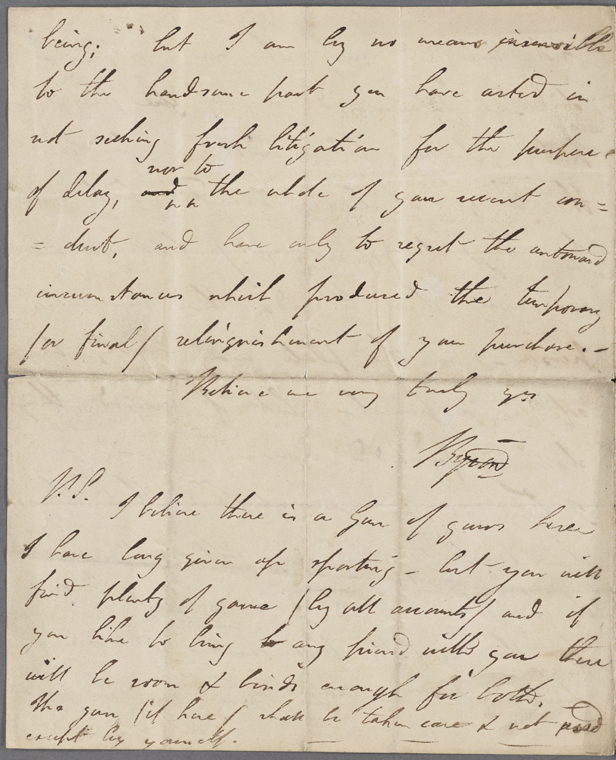 being; but I am by no means insensible
to the handsome part you have acted in
not seeking fresh litigation for the purpose
of delay, and nor to the whole of your recent con=
=duct, and have only to regret the untoward
circumstances which produced the temporary
(or final) relinquishment of your purchase.–
Believe me very truly yrs
Byron
P.S.
I believe there is a Gun of yours here
I have long given up sporting – but you will
find plenty of game (by all accounts) and if
you like to bring any friend with you there
will be room & birds enough for both.
The gun (if here) shall be taken care & not used
except by yourself.